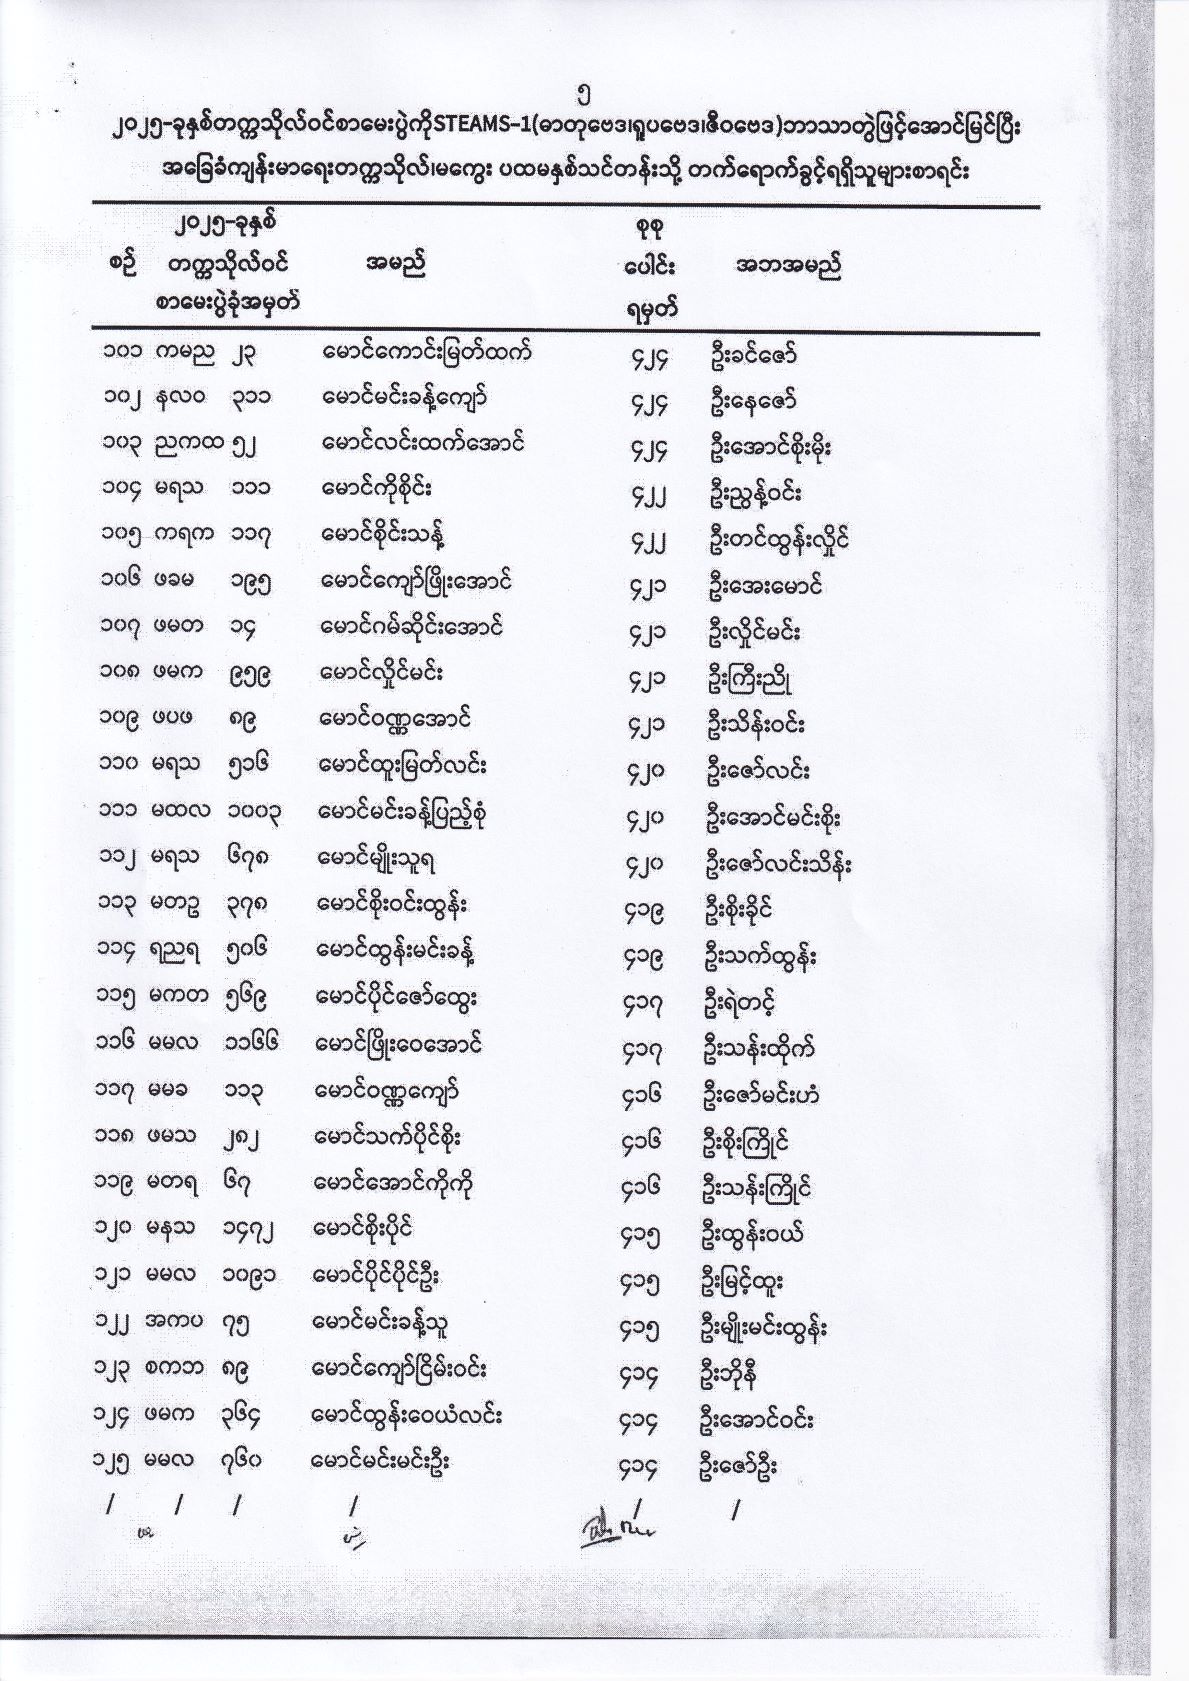 ၅
၂၀၂၅-ခုနှစ်တက္ကသိုလ်ဝင်စာမေးပွဲကိုSTEAMS-1(ဓာတုဗေဒ၊ရူပဗေဒ၊ဇီဝဗေဒ)ဘာသာတွဲဖြင့်အောင်မြင်ပြီး
အခြေခံကျန်းမာရေးတက္ကသိုလ်၊မကွေး ပထမနှစ်သင်တန်းသို့ တက်ရောက်ခွင့်ရရှိသူများစာရင်း
၂၀၂၅-ခုနှစ် စုစု
စဉ် တက္ကသိုလ်ဝင် အမည် ပေါင်း အဘအမည်
စာမေးပွဲခုံအမှတ် ရမှတ်
၁၀၁ ကမည ၂၃ မောင်ကောင်းမြတ်ထက် ၄၂၄ ဦးခင်ဇော်
၁၀၂ နလဝ ၃၁၁ မောင်မင်းခန့်ကျော် ၄၂၄ ဦးနေဇော်
၁၀၃ ညကထ ၅၂ မောင်လင်းထက်အောင် ၄၂၄ ဦးအောင်စိုးမိုး
၁၀၄ မရသ ၁၁၁ မောင်ကိုစိုင်း ၄၂၂ ဦးညွန့်ဝင်း
၁၀၅ ကရက ၁၁၇ မောင်စိုင်းသန့် ၄၂၂ ဦးတင်ထွန်းလှိုင်
၁၀၆ ဖခမ ၁၉၅ မောင်ကျော်ဖြိုးအောင် ၄၂၁ ဦးအေးမောင်
၁၀၇ ဖမတ ၁၄ မောင်ဂမ်ဆိုင်းအောင် ၄၂၁ ဦးလှိုင်မင်း
၁၀၈ ဖမက ၉၅၉ မောင်လှိုင်မင်း ၄၂၁ ဦးကြီးညို
၁၀၉ ဖပဖ ၈၉ မောင်ဝဏ္ဏအောင် ၄၂၁ ဦးသိန်းဝင်း
၁၁၀ မရသ ၅၁၆ မောင်ထူးမြတ်လင်း ၄၂၀ ဦးဇော်လင်း
၁၁၁ မထလ ၁၀၀၃ မောင်မင်းခန့်ပြည့်စုံ ၄၂၀ ဦးအောင်မင်းစိုး
၁၁၂ မရသ ၆၇၈ မောင်မျိုးသူရ ၄၂၀ ဦးဇော်လင်းသိန်း
၁၁၃ မတဥ ၃၇၈ မောင်စိုးဝင်းထွန်း ၄၁၉ ဦးစိုးခိုင်
၁၁၄ ရညရ ၅၀၆ မောင်ထွန်းမင်းခန့် ၄၁၉ ဦးသက်ထွန်း
၁၁၅ မကတ ၅၆၉ မောင်ပိုင်ဇော်ထွေး ၄၁၇ ဦးရဲတင့်
၁၁၆ မမလ ၁၁၆၆ မောင်ဖြိုးဝေအောင် ၄၁၇ ဦးသန်းထိုက်
၁၁၇ မမခ ၁၁၃ မောင်ဝဏ္ဏကျော် ၄၁၆ ဦးဇော်မင်းဟံ
၁၁၈ ဖမသ ၂၈၂ မောင်သက်ပိုင်စိုး ၄၁၆ ဦးစိုးကြိုင်
၁၁၉ မတရ ၆၇ မောင်အောင်ကိုကို ၄၁၆ ဦးသန်းကြိုင်
၁၂၀ မနသ ၁၄၇၂ မောင်စိုးပိုင် ၄၁၅ ဦးထွန်းဝယ်
၁၂၁ မမလ ၁၀၉၁ မောင်ပိုင်ပိုင်ဦး ၄၁၅ ဦးမြင့်ထူး
၁၂၂ အကပ ၇၅ မောင်မင်းခန့်သူ ၄၁၅ ဦးမျိုးမင်းထွန်း
၁၂၃ စကဘ ၈၉ မောင်ကျော်ငြိမ်းဝင်း ၄၁၄ ဦးဘိုနီ
၁၂၄ ဖမက ၃၆၄ မောင်ထွန်းဝေယံလင်း ၄၁၄ ဦးအောင်ဝင်း
၁၂၅ မမလ ၇၆၀ မောင်မင်းမင်းဦး ၄၁၄ ဦးဇော်ဦး
/ / / / / /